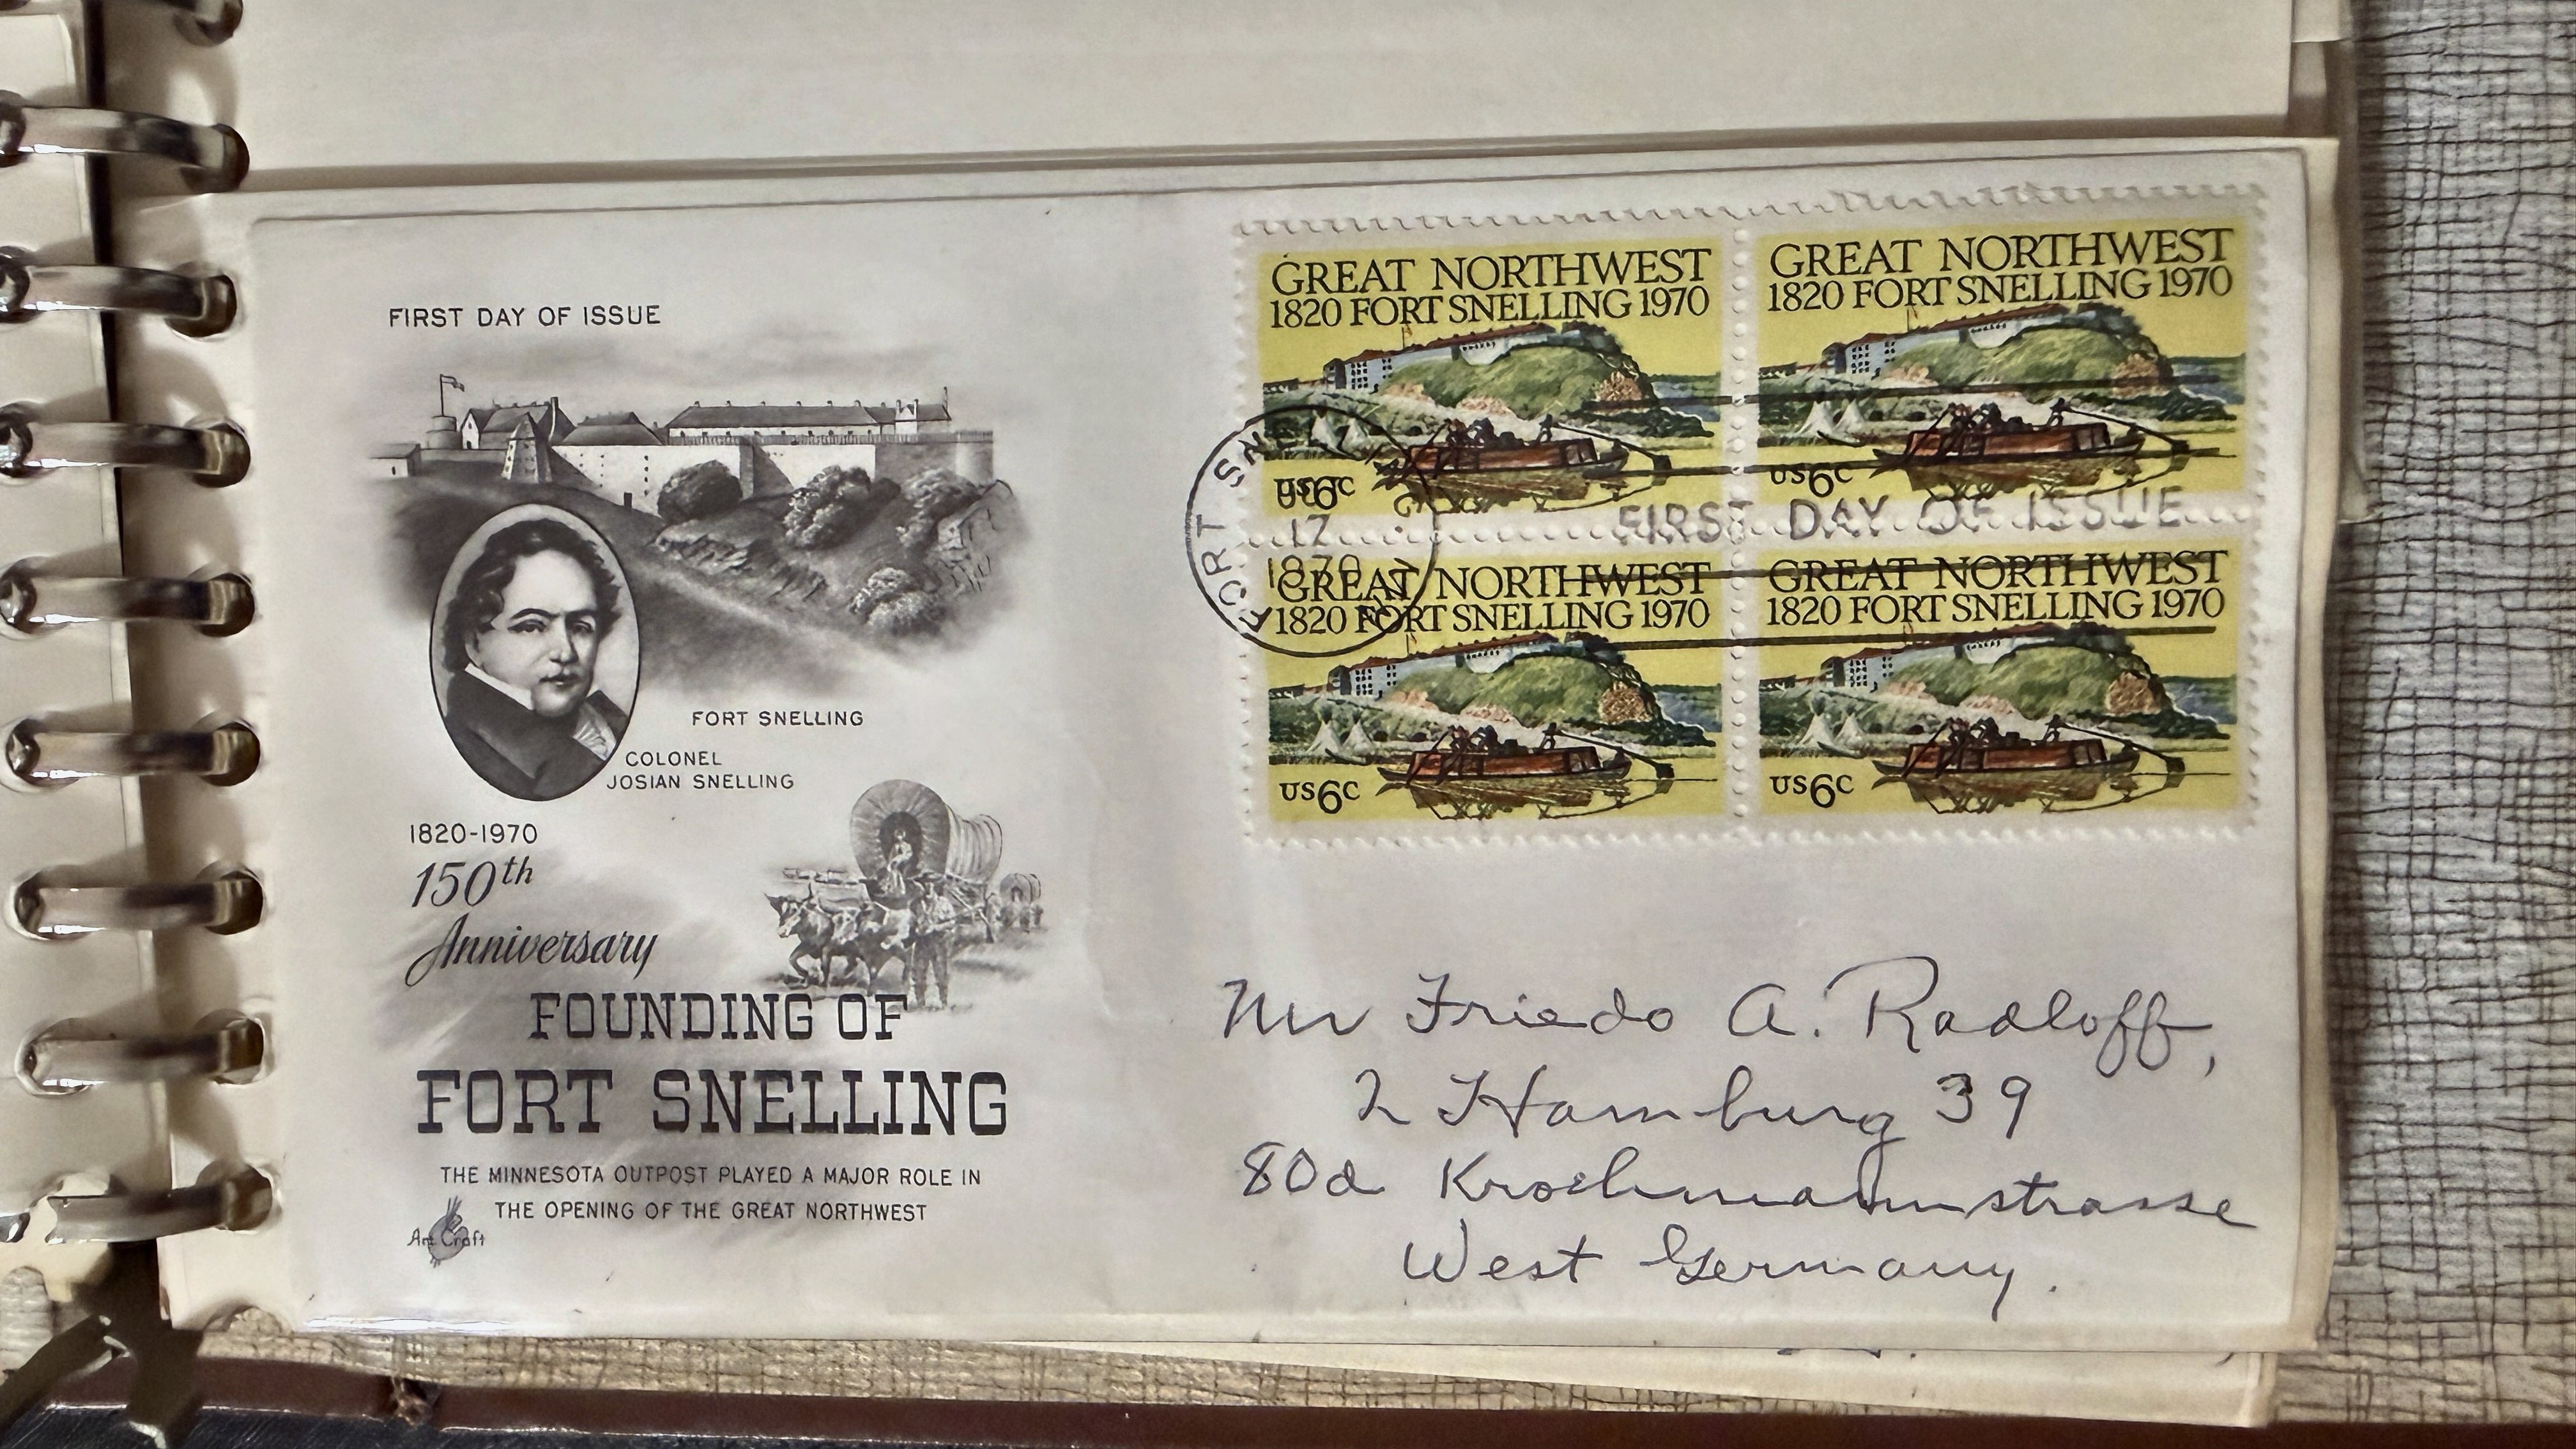 FIRST DAY OF ISSUE
FORT SNELLING
COLONEL
JOSIAN SNELLING
1820-1970
150th
Anniversary
FOUNDING OF
FORT SNELLING
THE MINNESOTA OUTPOST PLAYED A MAJOR ROLE IN
THE OPENING OF THE GREAT NORTHWEST
Art Craft
GREAT NORTHWEST
1820 FORT SNELLING 1970
US6c
GREAT NORTHWEST
1820 FORT SNELLING 1970
US6c
FORT SN
17
1970
FIRST DAY OF ISSUE
GREAT NORTHWEST
1820 FORT SNELLING 1970
US6c
GREAT NORTHWEST
1820 FORT SNELLING 1970
US6c
Mr Friedo A. Radloff,
2 Hamburg 39
80d Krochmannstrasse
West Germany.